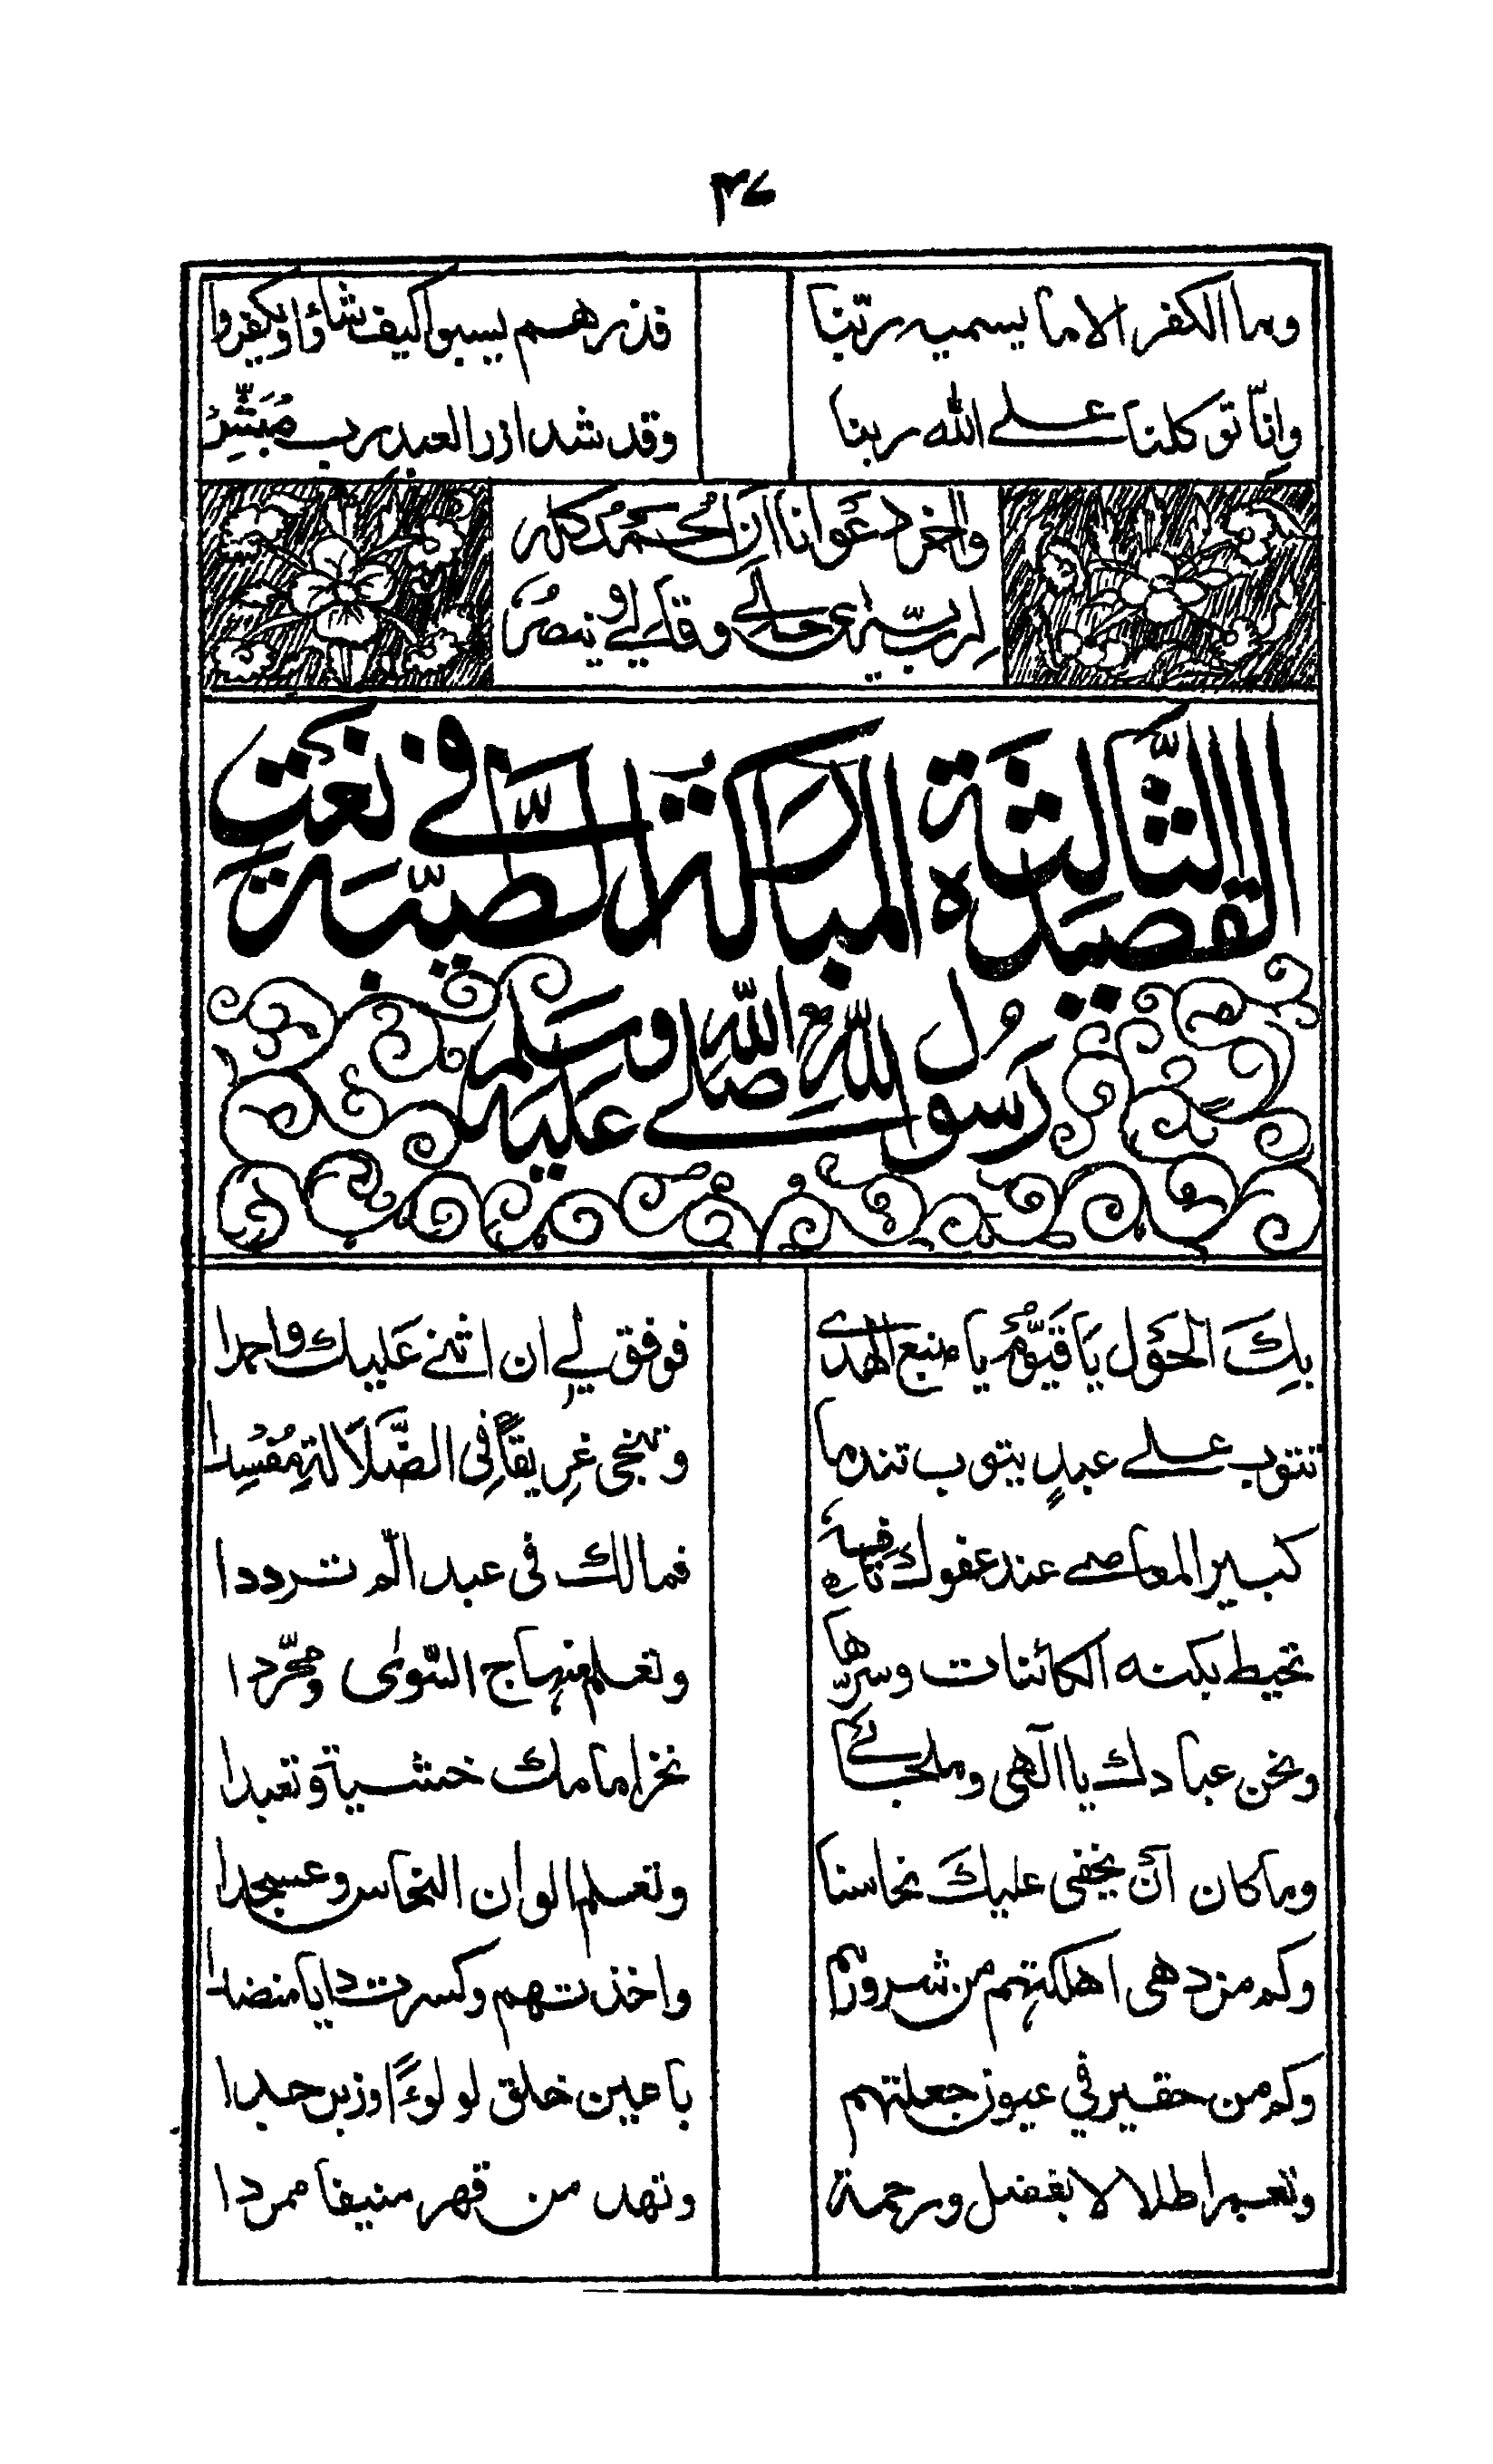 ٣٤
وما الكفر الا ما يسميه ربّنا فذرهم يسبوا كيف شاؤا ويكفروا
وانّا توكلنا علے الله ربنا وقد شد ازر العبد رب مُبَشِّرُ
واٰخر دَعَوانا انِ الحَمدُ كله
لِربّ يَرىٰ حالِي وقالِي وينصُرُ
القصيدة الثّالِثَة المباركة الطّيّبة فى نَعْتِ
رَسُولِ اللهِ صلى الله عليه وسلم
بِكَ الحَول يَا قيّومُ يا منبع الهدى فوفق لے ان اثنے عَليك واحمدا
تتوب علے عبدٍ يتوب تندما وتنجى غرِيقاً فِى الضَّلَالةِ مُفسِدا
كبير المعاصے عند عفوك تافِهٌ فمالك فى عبد الّم ترددا
تحيط بكنه الكائنات وسرّها وتعلم منهاج السّوٰى ومحّردا
ونحن عبادك يا الٰهى وملجائے نخر امامك خشية وتعبدا
وما كان اَنْ يخفى عليكَ نحاسنا وتعلم الوان النحاس وعسجدا
وكم من دهى اهلكتهم من شرورهم واخذتهم وكسرت دايا منضدا
وكم من حقير فى عيون جعلتهم باعين خلق لولوءًا وزبرجدا
وتعمر اطلالا بفضل ورحمة وتهد من قهر منيفا ممردا